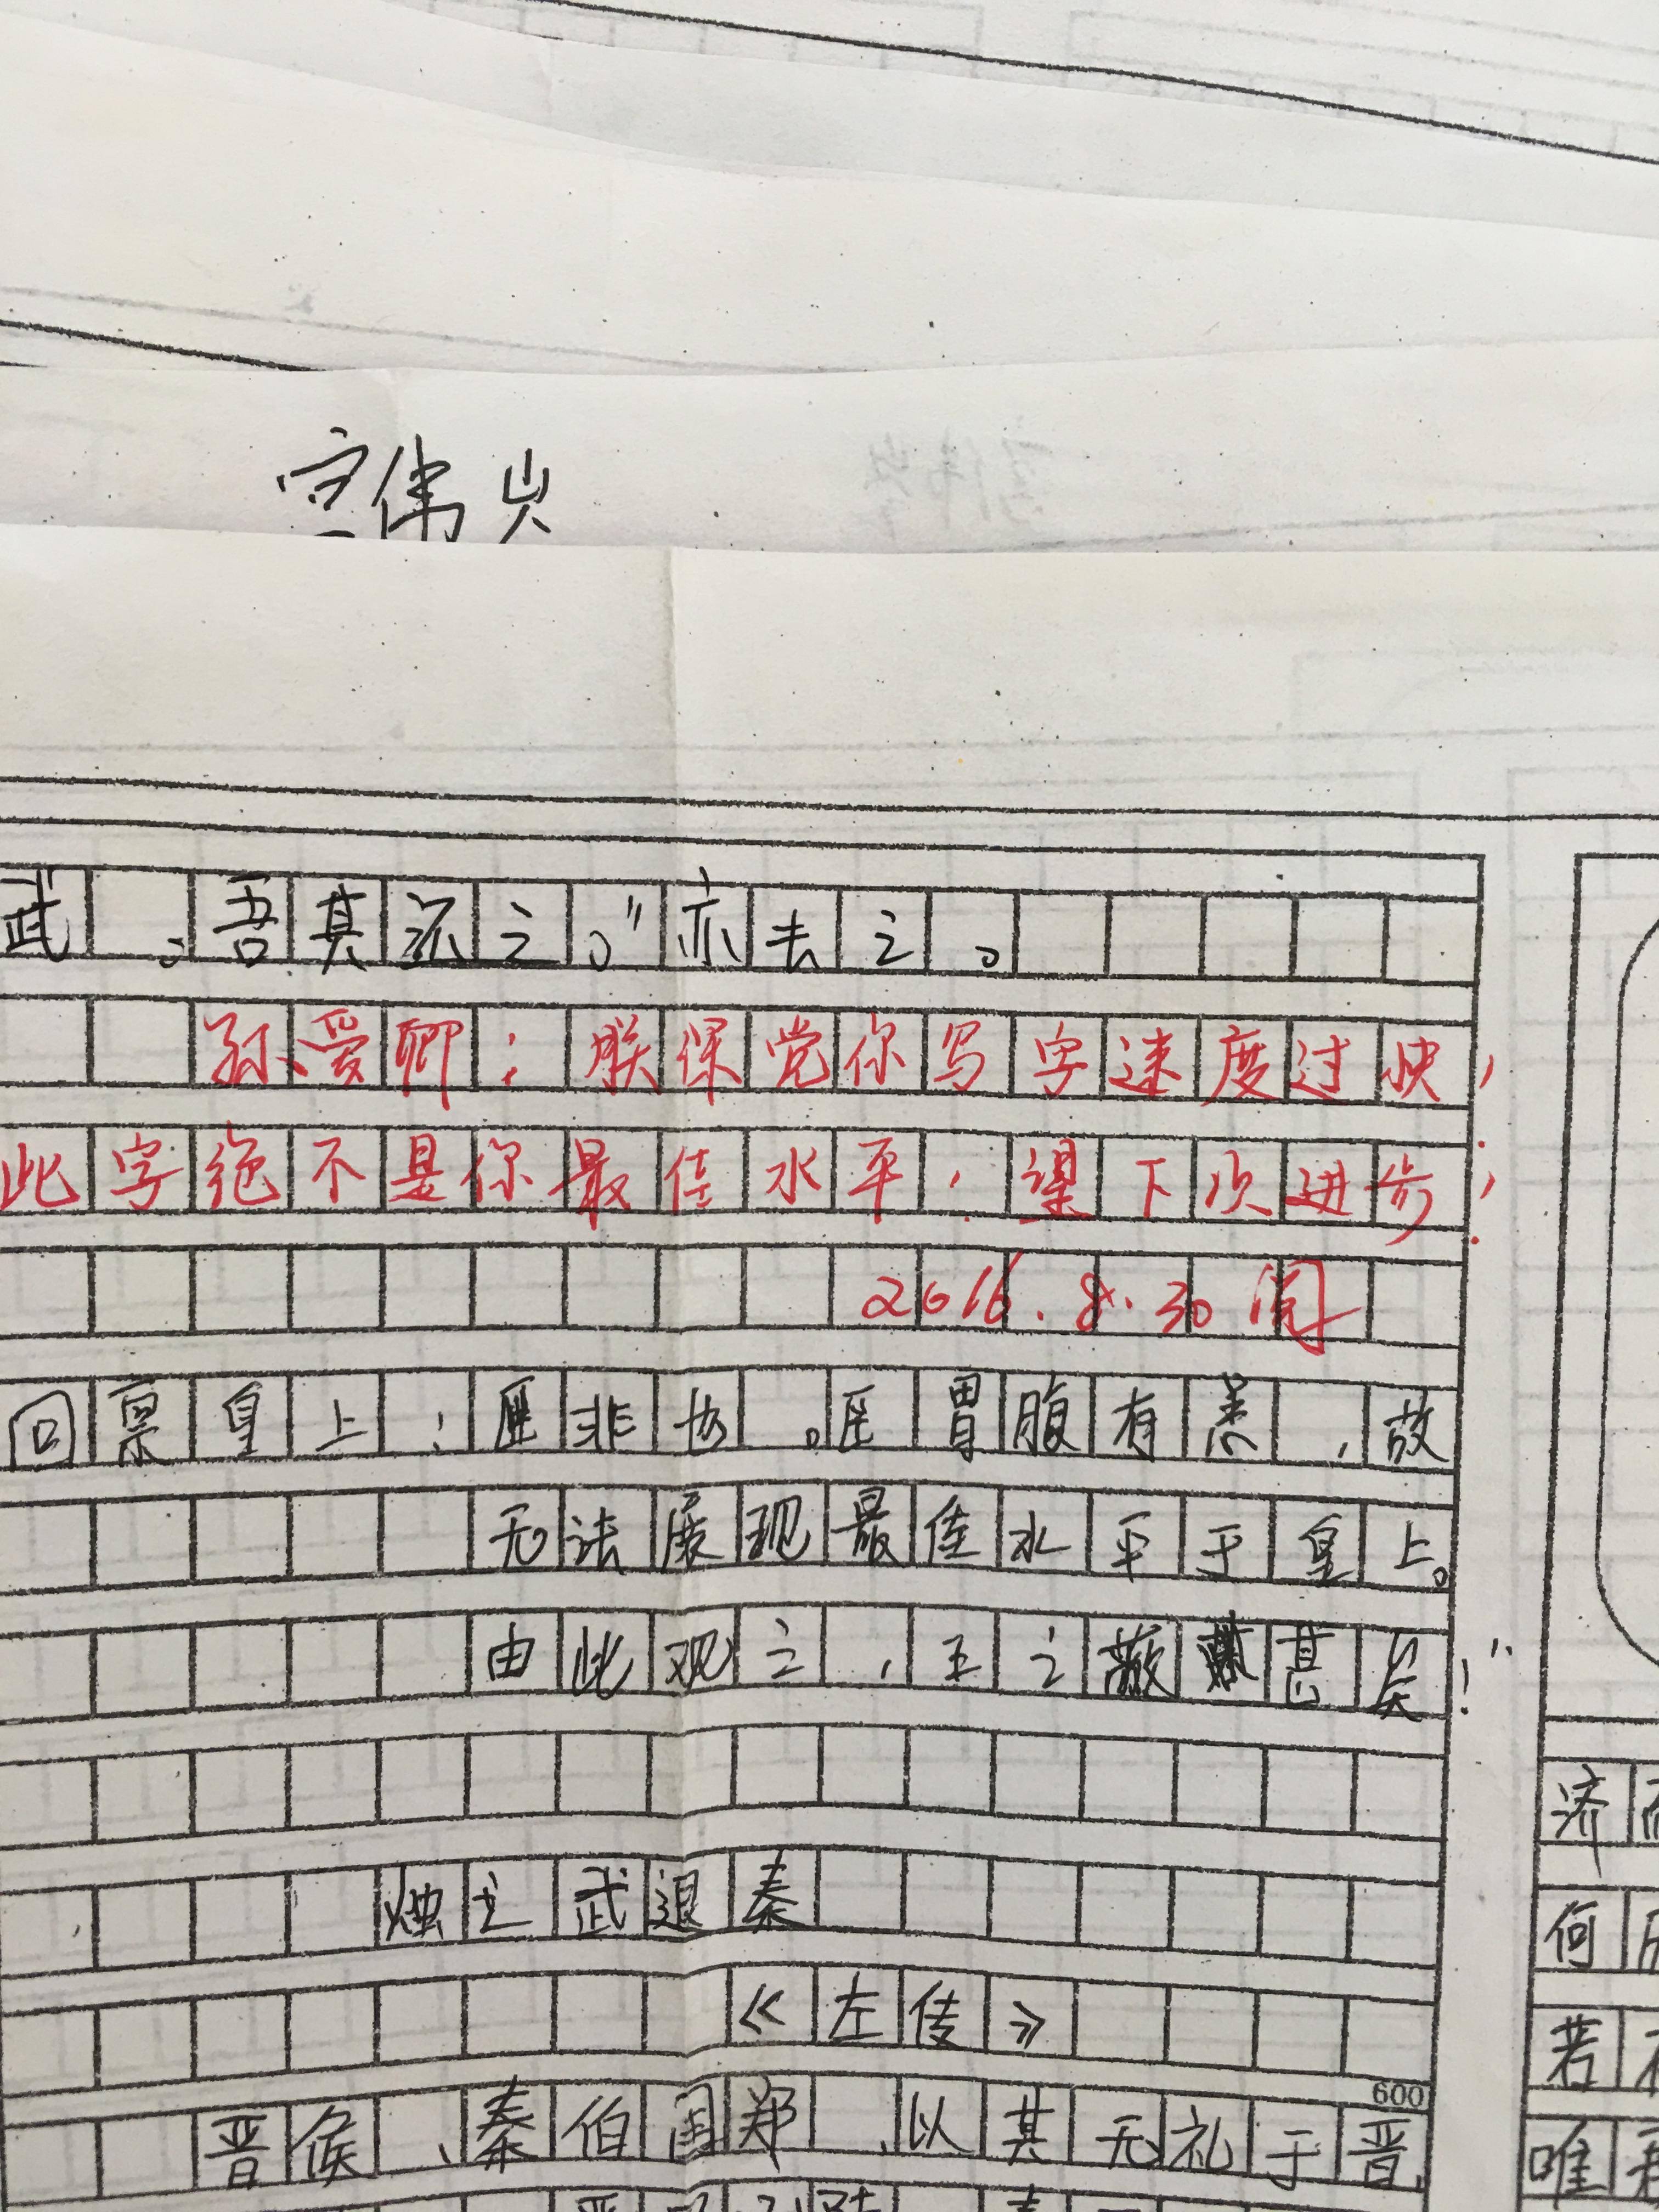 武。吾其还之。”亦去之。
孙爱卿：朕深觉你写字速度过快，
此字绝不是你最佳水平，望下次进步！
2016.8.30阅
回禀皇上：臣非也。臣胃腹有恙，故
无法展现最佳水平于皇上。
由此观之，王之蔽甚矣！”
烛之武退秦
《左传》
600
晋侯、秦伯围郑，以其无礼于晋，
济
何
若
唯